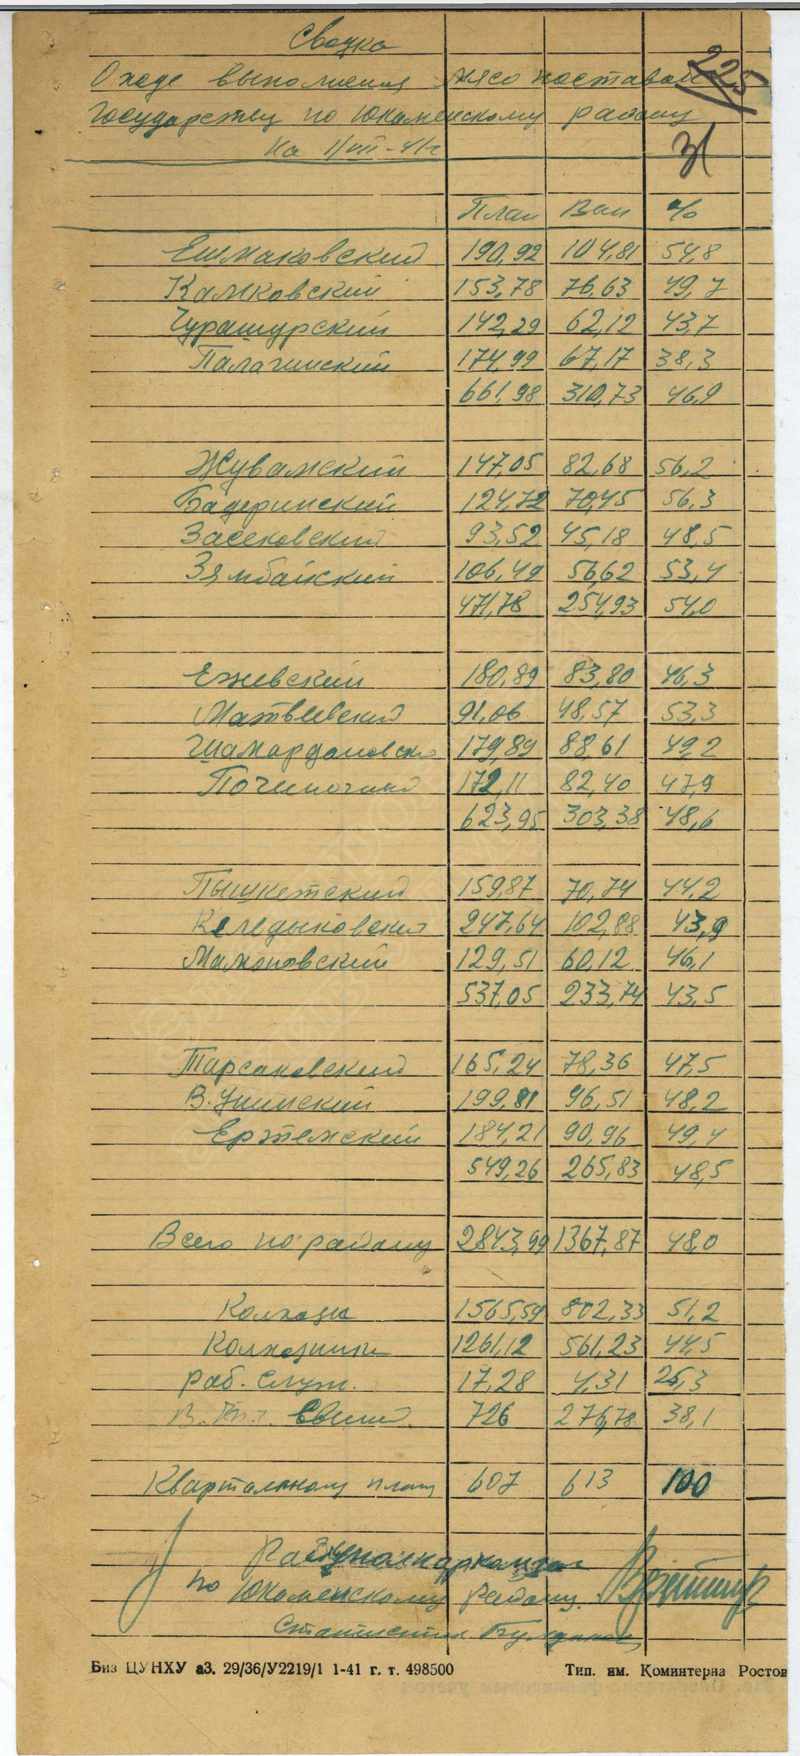 Сводка
225
О ходе выполнения мясо поставок
Государству по Юкаменскому району
31
На 1/VIII-41г
План Вып %
Ешмаковский 190,92 104,81 54,8
Камковский 153,78 76,63 49,7
Чурашурский 142,29 62,12 43,7
Палагинский 174,99 67,17 38,3
661,98 310,73 46,9
Жувамский 147,05 82,68 56,2
Бадеринский 124,72 70,45 56,3
Засековский 93,52 45,18 48,5
Зямбайский 106,49 56,62 53,4
471,78 254,93 54,0
Ежевский 180,89 83,80 46,3
Матвеевский 91,06 48,57 53,3
Шамардановско 179,89 88,61 49,2
Починочный 172,11 82,40 47,9
623,95 303,38 48,6
Пышкетский 159,87 70,74 44,2
Келедыковский 247,64 102,88 43,9
Мамоновский 129,51 60,12 46,1
537,05 233,74 43,5
Тарсаковский 165,24 78,36 47,5
В.Унинский 199,81 96,51 48,2
Ертемский 184,21 90,96 49,4
549,26 265,83 48,5
Всего по району 2843,99 1367,87 48,0
Колхозы 1565,59 802,33 51,2
Колхозники 1261,12 561,23 44,5
Раб. служ. 17,28 4,31 25,3
В. т.ч. Свиней 726 276,78 38,1
Квартальному плану 607 613 100
Райуполнаркомзаг
по Юкаменскому району.
Статистик
Биз ЦУНХУ аЗ. 29/36/У2219/1 1-41 г. т. 498500 Тип. им. Коминтерна Ростов